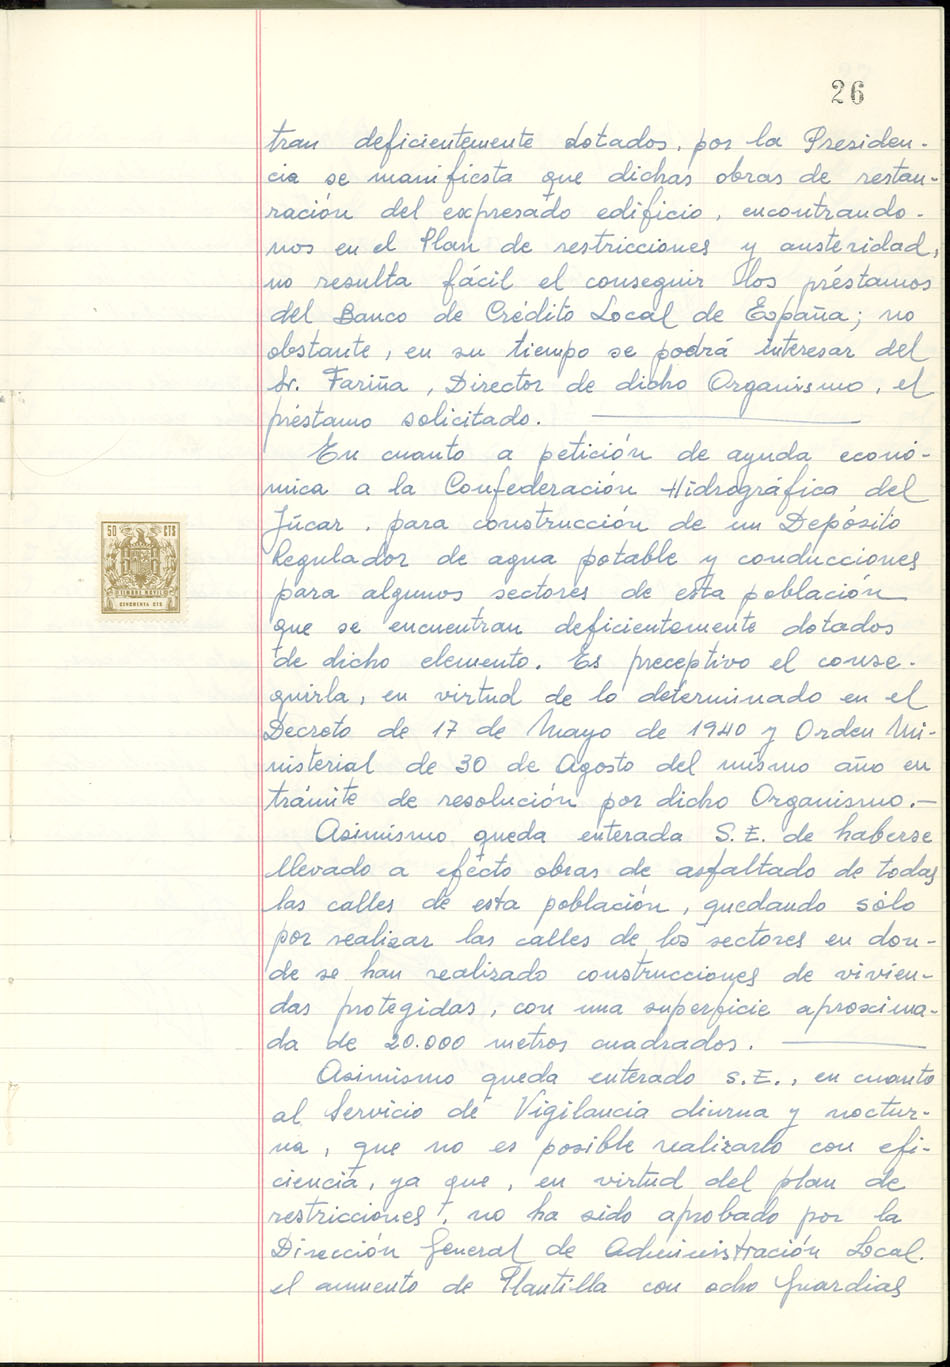 26
tran deficientemente dotados, por la Presiden-
cia se manifiesta que dichas obras de restau-
ración del expresado edificio, encontrando-
nos en el Plan de restricciones y austeridad,
no resulta fácil el conseguir los préstamos
del Banco de Crédito Local de España; no
obstante, en su tiempo se podrá interesar del
Sr. Fariña, Director de dicho Organismo, el
préstamo solicitado.
En cuanto a petición de ayuda econó-
mica a la Confederación Hidrográfica del
Júcar, para construcción de un Depósito
Regulador de agua potable y conducciones
para algunos sectores de esta población
que se encuentran deficientemente dotados
de dicho elemento. Es preceptivo el conse-
guirla, en virtud de lo determinado en el
Decreto de 17 de Mayo de 1940 y Orden Mi-
nisterial de 30 de Agosto del mismo año en
trámite de resolución por dicho Organismo.—
Asimismo queda enterada S.E. de haberse
llevado a efecto obras de asfaltado de todas
las calles de esta población, quedando sólo
por realizar las calles de los sectores en don-
de se han realizado construcciones de vivien-
das protegidas, con una superficie aproxima-
da de 20.000 metros cuadrados.
Asimismo queda enterado S.E., en cuanto
al Servicio de Vigilancia diurna y noctur-
na, que no es posible realizarlo con efi-
ciencia, ya que, en virtud del plan de
restricciones, no ha sido aprobado por la
Dirección General de Administración Local.
el aumento de Plantilla con ocho Guardias
50 CTS
TIMBRE MOVIL
CINCUENTA CTS